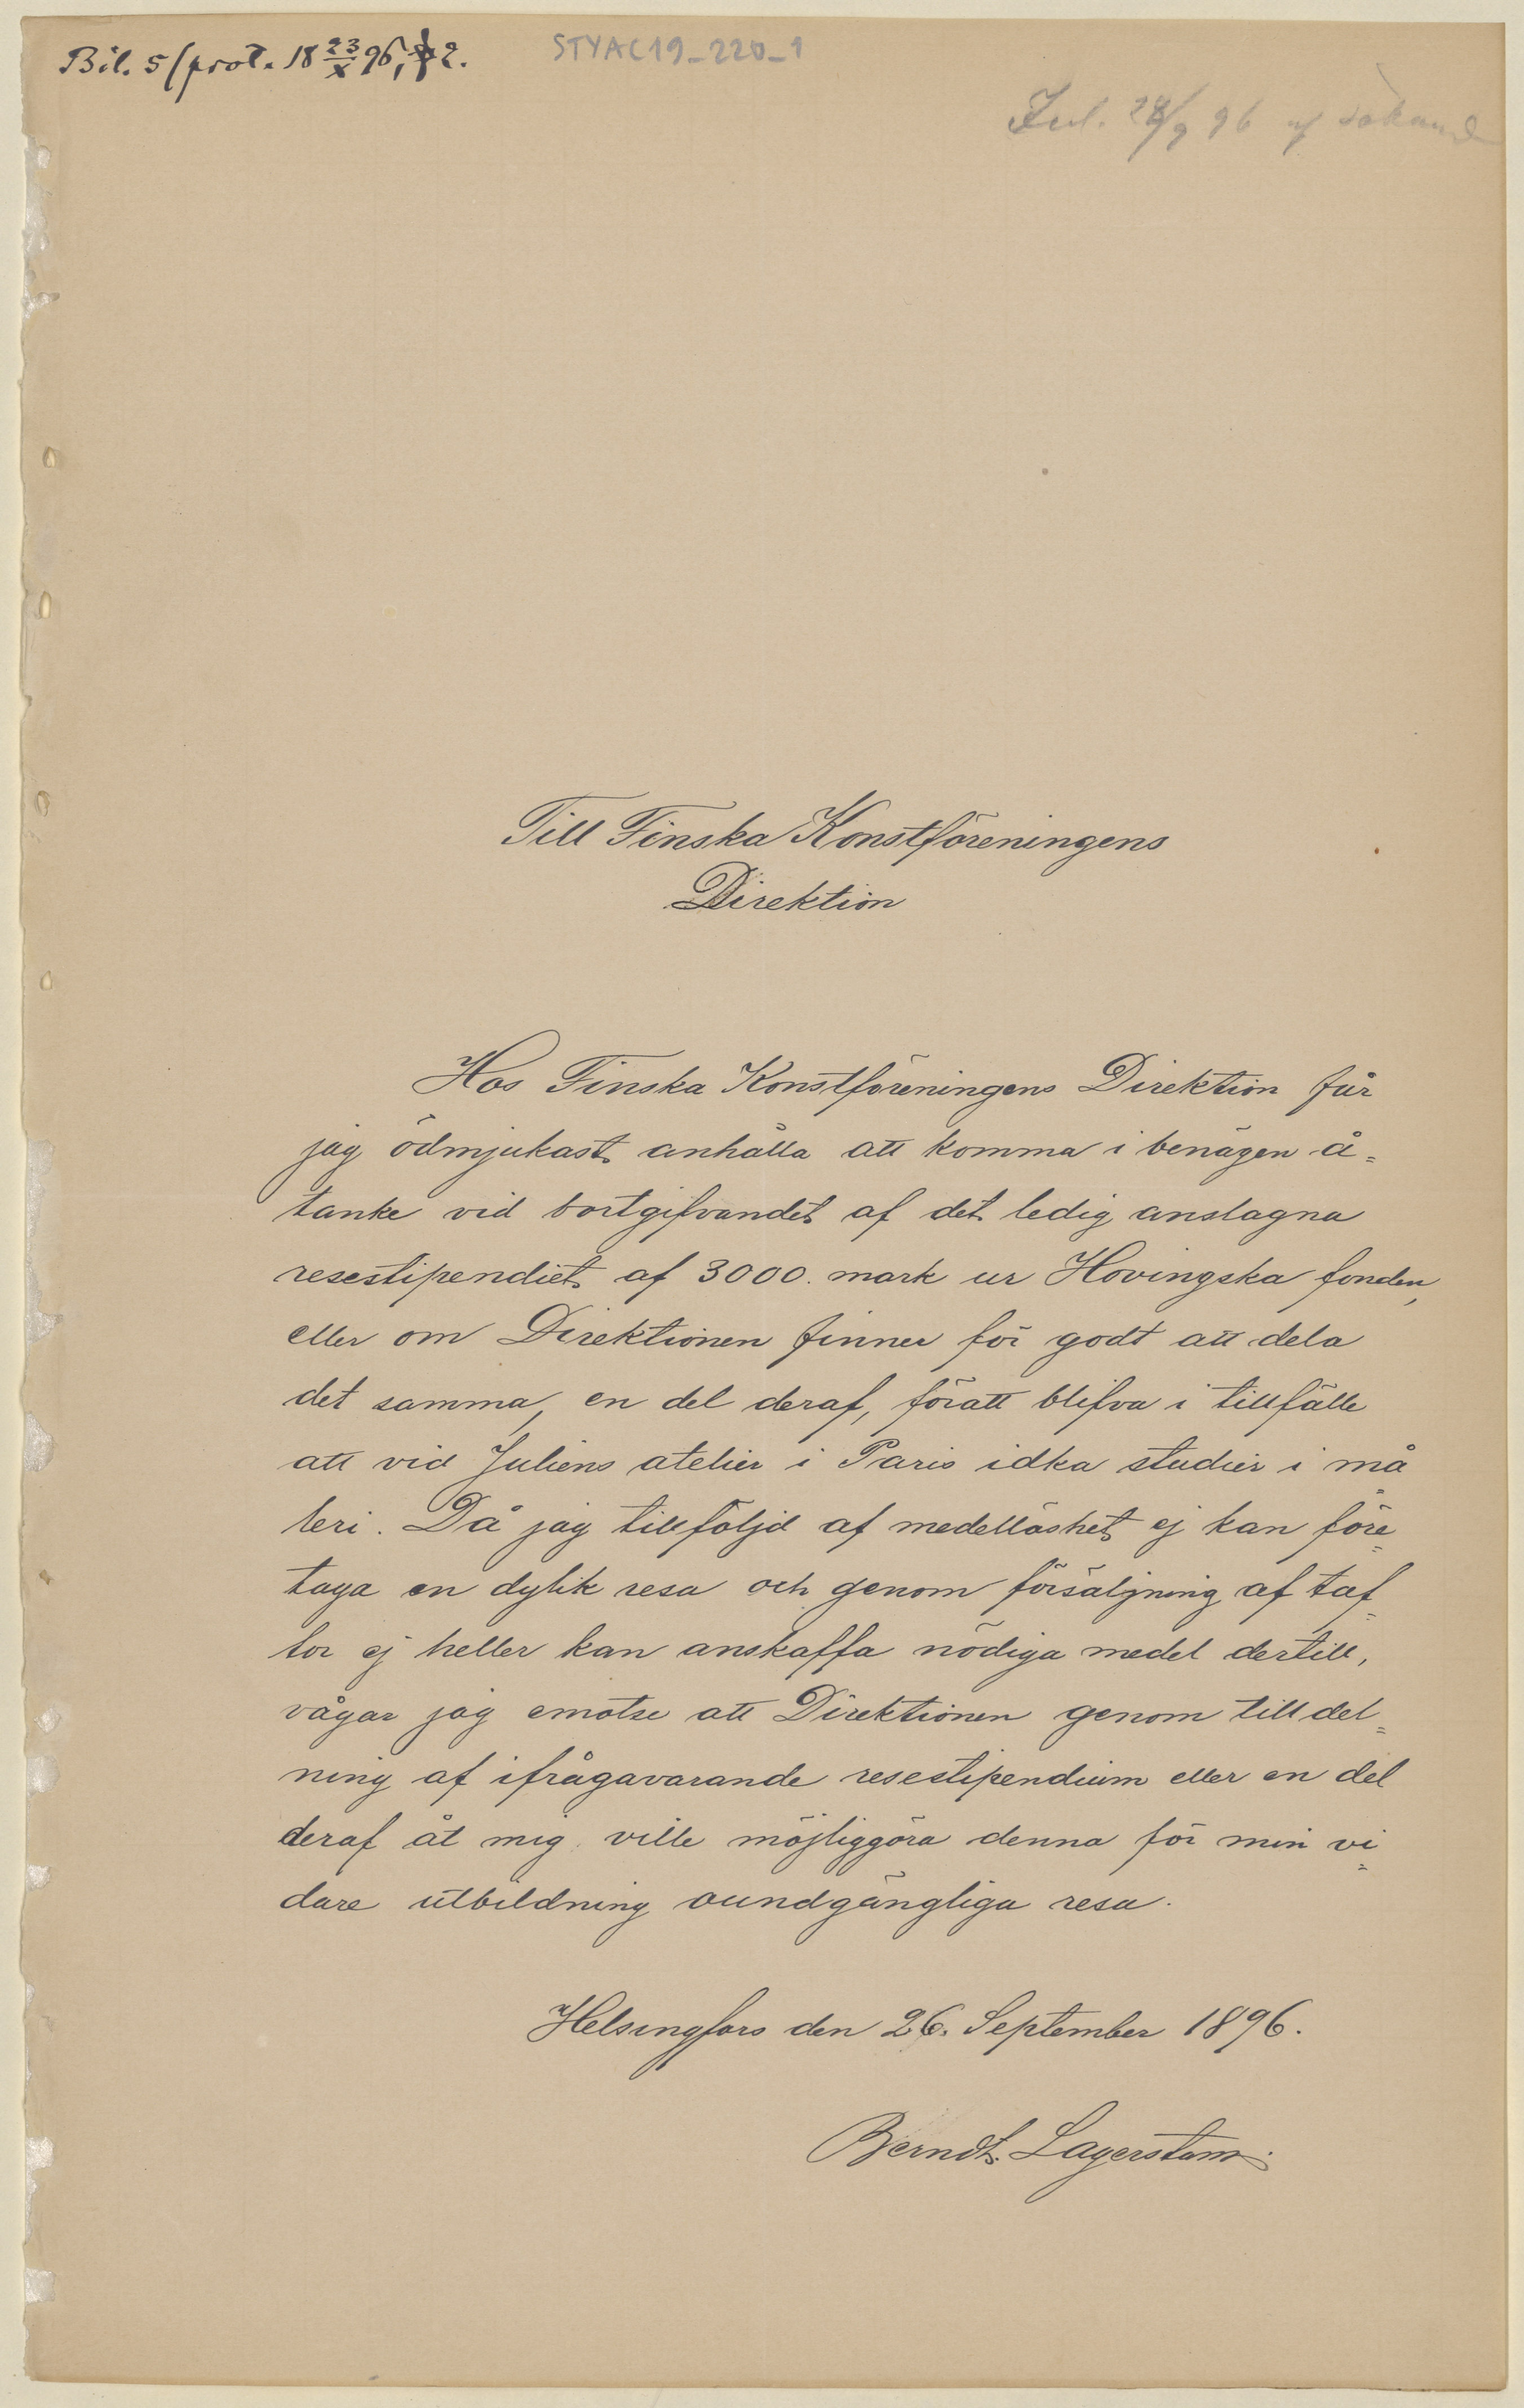 Bil. 5 / prot. 18 23/X 96, § 2.
STYAC19_220_1
Inl. 28/9 96 af sökand
Till Finska Konstföreningens
Direktion
Hos Finska Konstföreningens Direktion får
jag ödmjukast anhålla att komma i benägen å=
tanke vid bortgifvandet af det ledig anslagna
resestipendiet af 3000. mark ur Hovingska fonden,
eller om Direktionen finner för godt att dela
det samma, en del deraf, föratt blifva i tillfälle
att vid Juliens atelier i Paris idka studier i må=
leri. Då jag tillföljd af medellöshet ej kan före=
taga en dylik resa och genom försäljning af taf=
lor ej heller kan anskaffa nödiga medel dertill,
vågar jag emotse att Direktionen genom tilldel=
ning af ifrågavarande resestipendium eller en del
deraf åt mig ville möjliggöra denna för min vi=
dare utbildning oundgängliga resa.
Helsingfors den 26. September 1896.
Berndt Lagerstam.